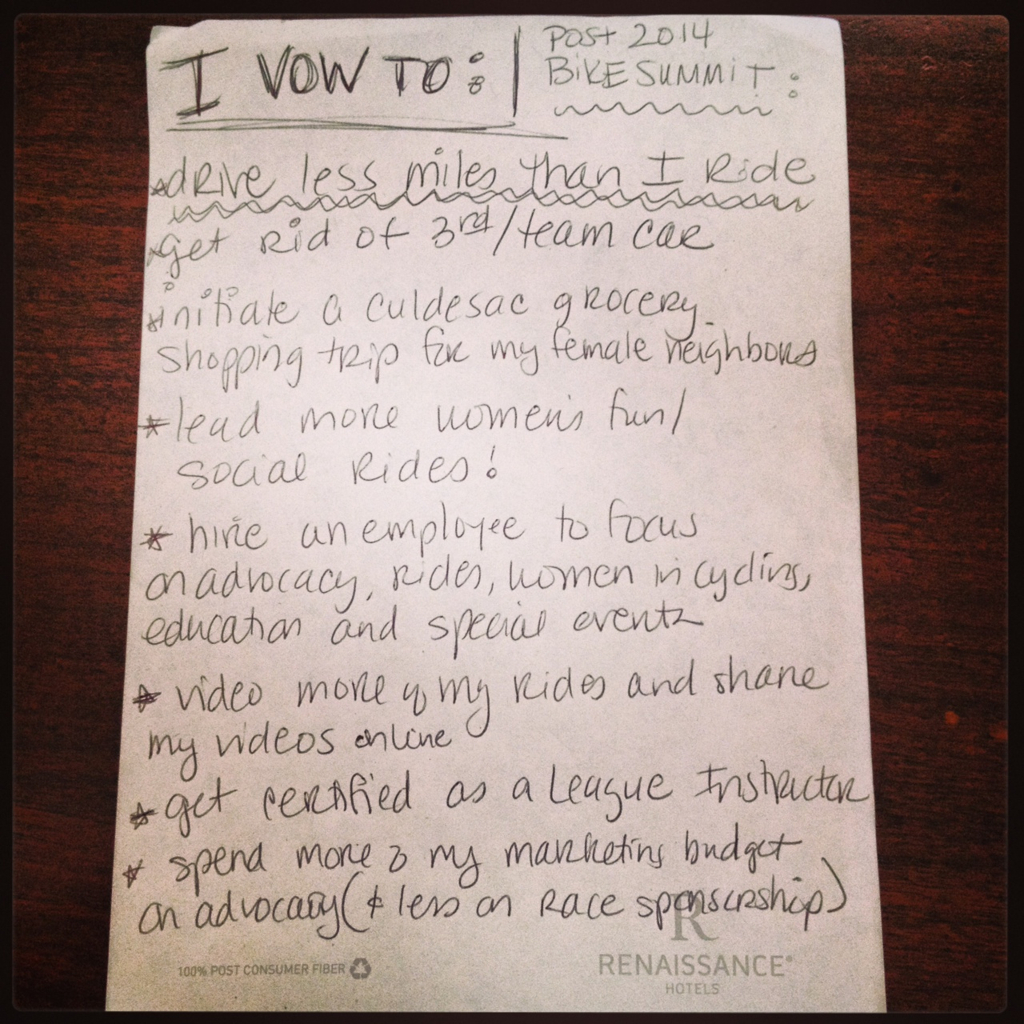 I VOW TO: | POST 2014
BIKE SUMMIT:
*drive less miles than I Ride
*get rid of 3rd/team car
*initiate a culdesac grocery
shopping trip for my female neighbors
*lead more women's fun/
social Rides!
* hire an employee to focus
on advocacy, rides, women in cycling,
education and special events
* video more of my rides and share
my videos online
* get certified as a League Instructor
* spend more of my marketing budget
on advocacy (& less on Race sponsorship)
100% POST CONSUMER FIBER
R
RENAISSANCE®
HOTELS